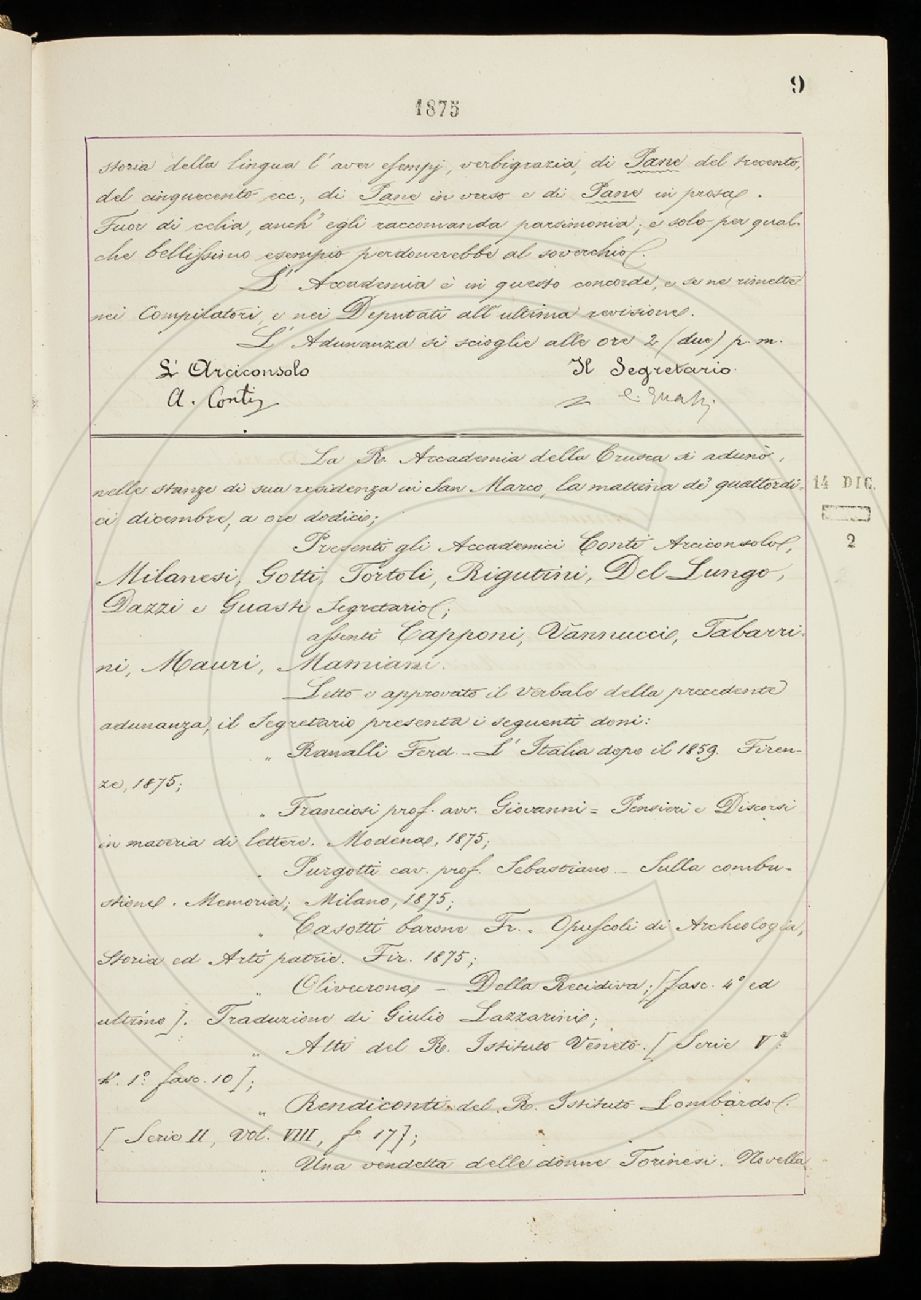 9
1875
storia della lingua l'aver essempj, verbigrazia, di Pane del trecento,
del cinquecento ecc., di Pane in verso e di Pane in prosa.
Fuor di celia, anch'egli raccomanda parsimonia; e solo per qual-
che bellissimo esempio perdonerebbe al soverchio.
L'Accademia è in questo concorde, e se ne rimette
nei Compilatori, e nei Deputati all'ultima revisione.
L'Adunanza si scioglie alle ore 2 (due) p. m.
L'Arciconsolo Il Segretario
A. Conti C. Guasti
La R. Accademia della Crusca si adunò,
nelle stanze di sua residenza in San Marco, la mattina de' quattordi-
ci dicembre, a ore dodici;
14 DIC.
2
Presenti gli Accademici Conti Arciconsolo,
Milanesi, Gotti, Tortoli, Rigutini, Del Lungo,
Dazzi e Guasti Segretario;
assenti Capponi, Vannucci, Tabarri-
ni, Mauri, Mamiani.
Letto e approvato il verbale della precedente
adunanza, il Segretario presenta i seguenti doni:
„ Ranalli Ferd. - L'Italia dopo il 1859. Firen-
ze, 1875;
„ Franciosi prof. avv. Giovanni = Pensieri e Discorsi
in materia di lettere. Modena, 1875;
„ Purgotti cav. prof. Sebastiano - Sulla combu-
stione. Memoria; Milano, 1875;
„ Casotti barone Fr. - Opuscoli di Archeologia,
Storia ed Arti patrie. Fir. 1875;
„ Olivecrona - Della Recidiva; [fasc. 4º ed
ultimo]. Traduzione di Giulio Lazzarini;
„ Atti del R. Istituto Veneto. [Serie Vª
t. 1º fasc. 10];
„ Rendiconti del R. Istituto Lombardo.
[Serie II, Vol. VIII, f. 17];
„ Una vendetta delle donne Torinesi. Novella